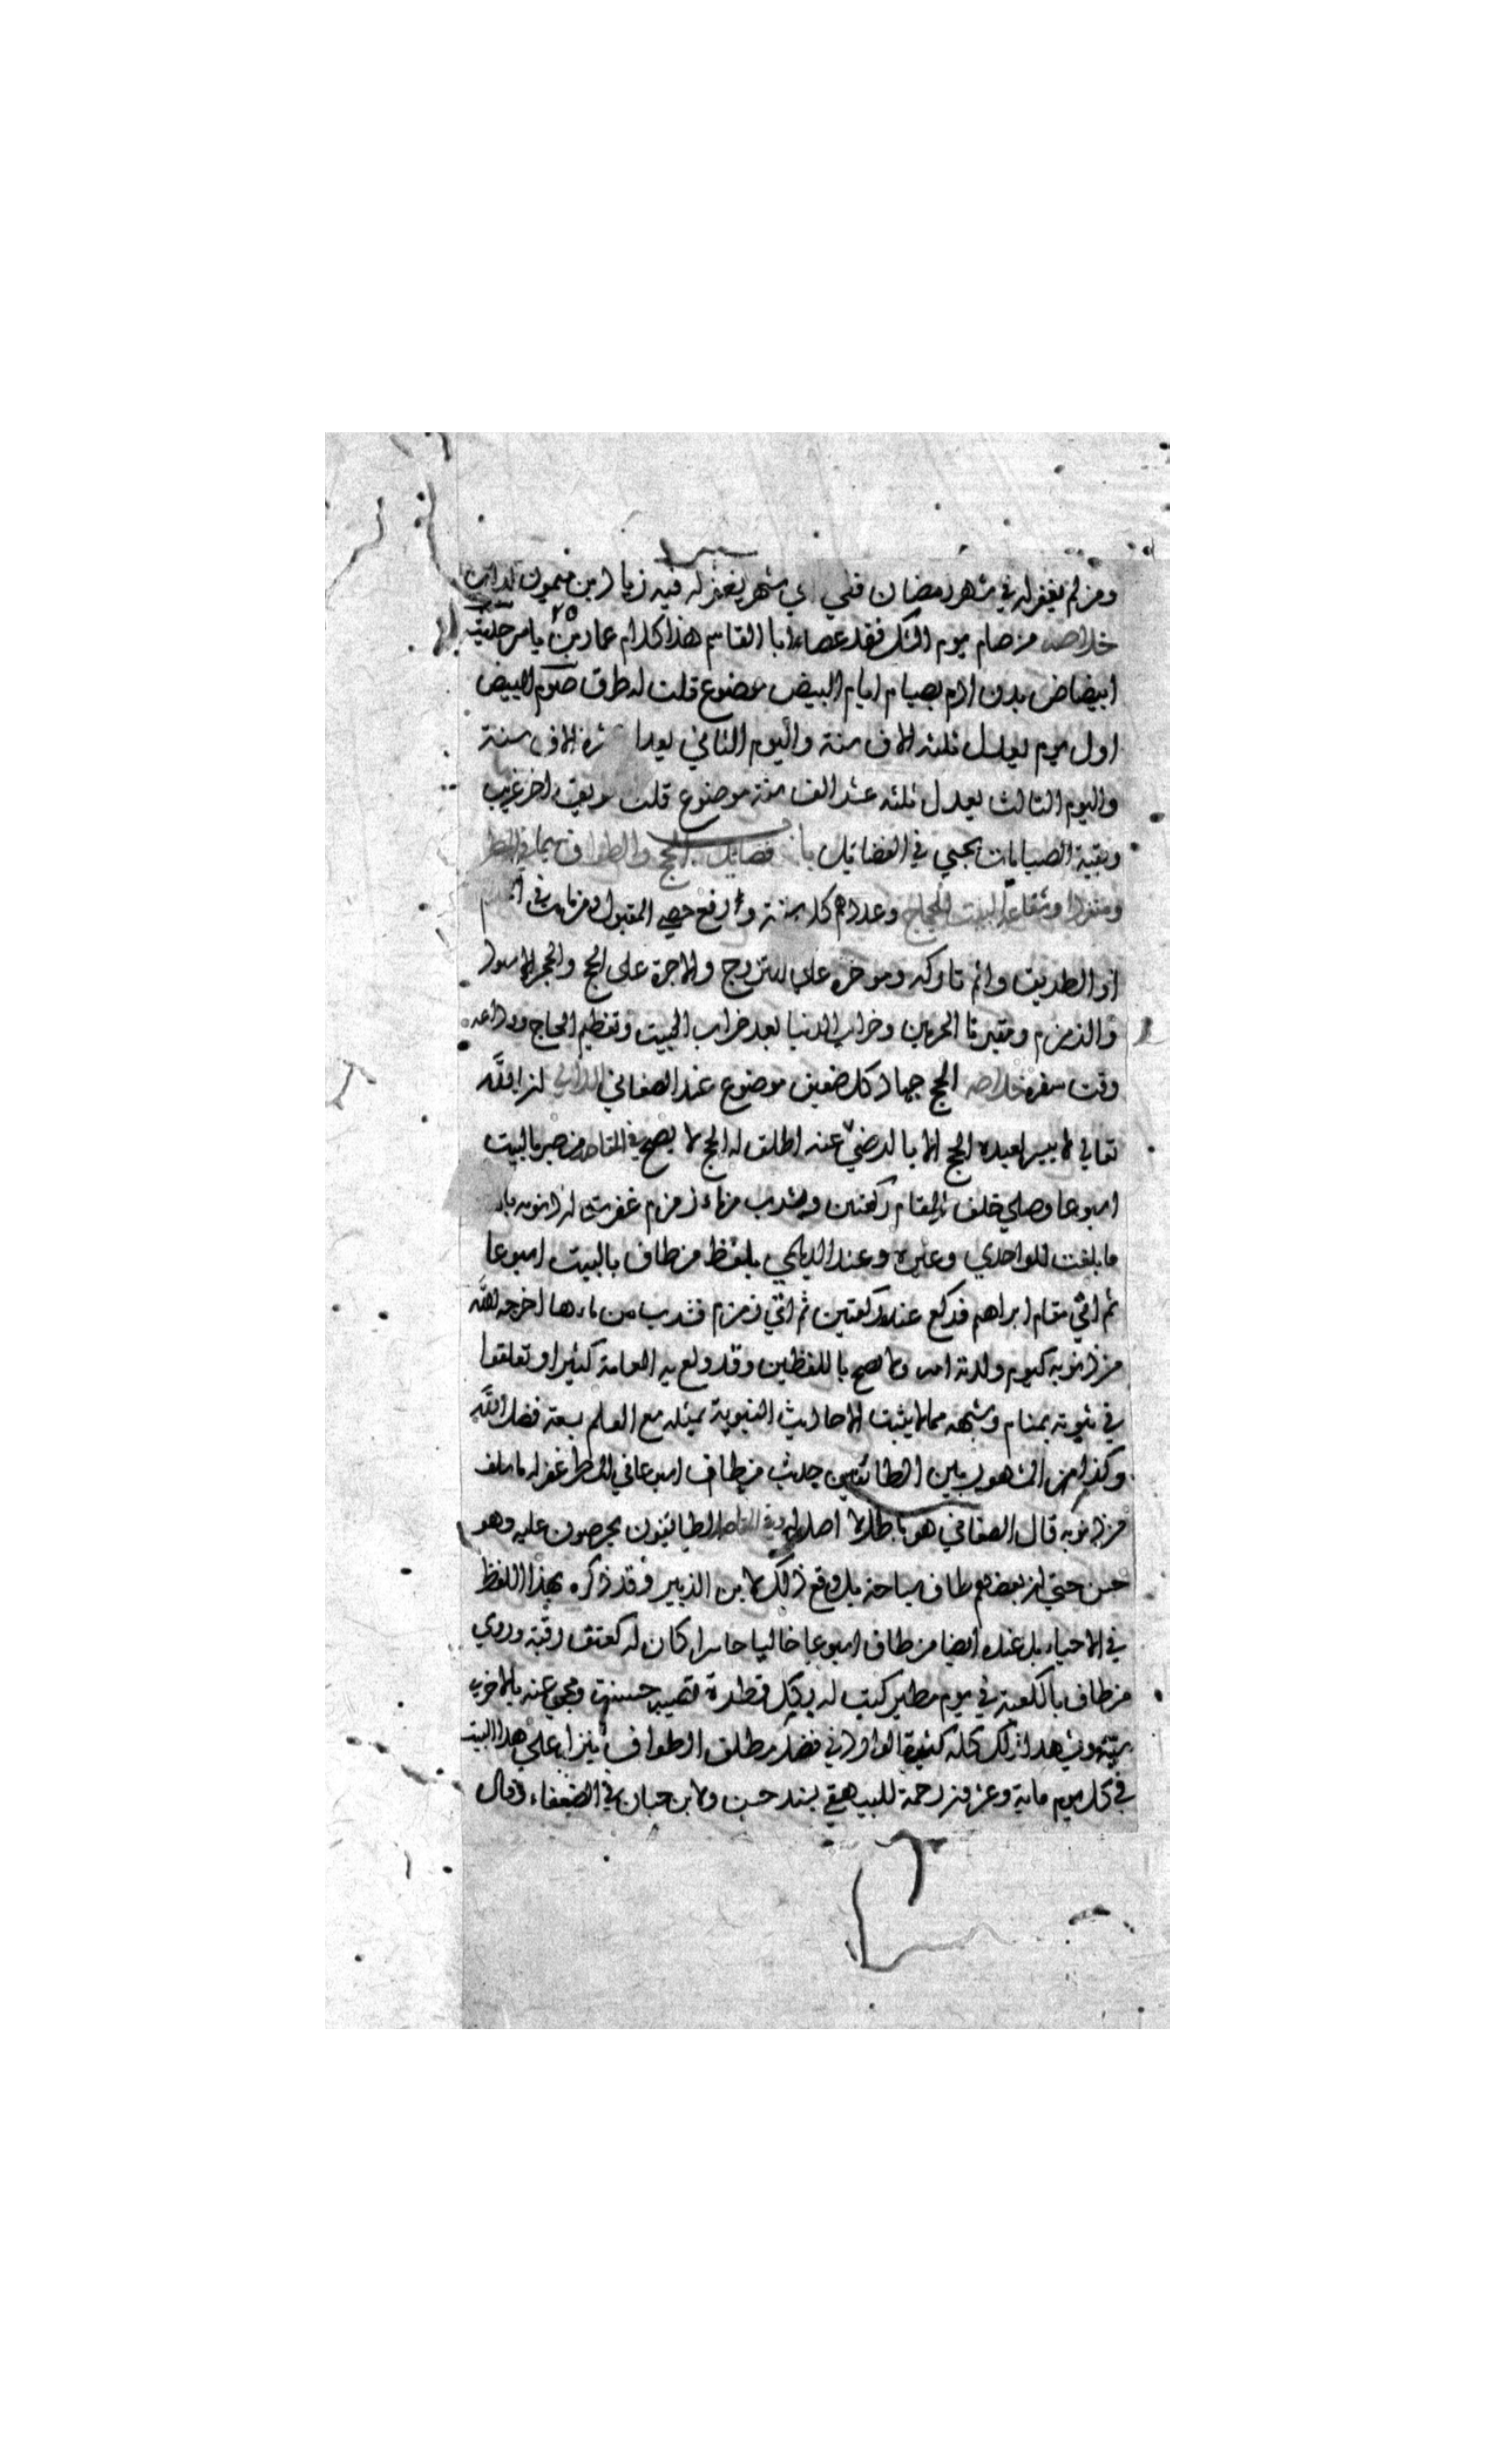 ومن لم يغفر له في شهر رمضان ففي اي شهر يغفر له فيه زياد ابن ميمون كذاب
خلاصه من صام يوم الشك فقد عصا ابا القاسم هذا كلام عمار بن ياسر حديث
ابيضاض بدن ادم بصيام ايام البيض موضوع قلت له طرق صوم البيض
اول يوم يعدل ثلثه الاف سنة واليوم الثاني يعدل الاف سنة
واليوم الثالث يعدل ثلثه عشر الف سنة موضوع قلت اخر غريب
وبقية الصيامات يجيي في الفضايل فضايل الحج والطواف سيما في المطر
البيت للحجاج وعددهم كل سنة ورفع حصى المقبول ومن مات في
او الطريق واثم تاركه وموخره على التزوج والاجرة على الحج والحجر الاسود
والزمزم ومقبرتا الحرمين وخراب الدنيا بعد خراب البيت وتعظيم الحاج ووداعه
وقت سفره خلاصه الحج جهاد كل ضعيف موضوع عند الصغاني ان الله
تعالي لا ييسر لعبده الحج الا بالرضي عنه اطلق له الحج لا يصح في المقاصد من طاف بالبيت
اسبوعا وصلي خلف المقام ركعتين وشرب من ماء زمزم غفرت له ذنوبه بالغة
ما بلغت للواحدي وغيره وعند الديلمي بلفظ من طاف بالبيت اسبوعا
ثم اتي مقام ابراهيم فركع عنده ركعتين ثم اتي زمزم فشرب من ماءها اخرجه الله
من ذنوبه كيوم ولدته امه ولا يصح باللفظين وقد ولع به العامة كثيرا وتعلقوا
في ثبوته بمنام وشبهه مما لا يثبت الاحاديث النبوية بمثله مع العلم بسعة فضل الله
وكذا من المشهور بين الطائفين حديث من طاف اسبوعا في المطر غفر له ما سلف
من ذنوبه قال الصغاني هو باطل لا اصل له وفي المقاصد الطائفون يحرصون عليه وهو
حسن حتي ان بعضهم طاف سباحة بل وقع ذلك لابن الزبير وقد ذكره بهذا اللفظ
في الاحياء بل عنده ايضا من طاف اسبوعا خاليا حاسرا كان له كعتق رقبة وروي
من طاف بالكعبة في يوم مطير كتب له بكل قطرة تصيبه حسنة ومحي عنه بالاخرى
سيئة ويشهد لذلك كله كثرة الوارد في فضل مطلق الطواف ينزل علي هذا البيت
في كل يوم ماية وعشرون رحمة للبيهقي بسند حسن ولابن حبان في الضعفاء وقال